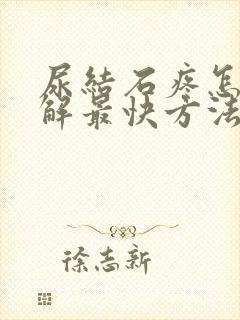 尿結石疼怎
解最快方法
徐志新